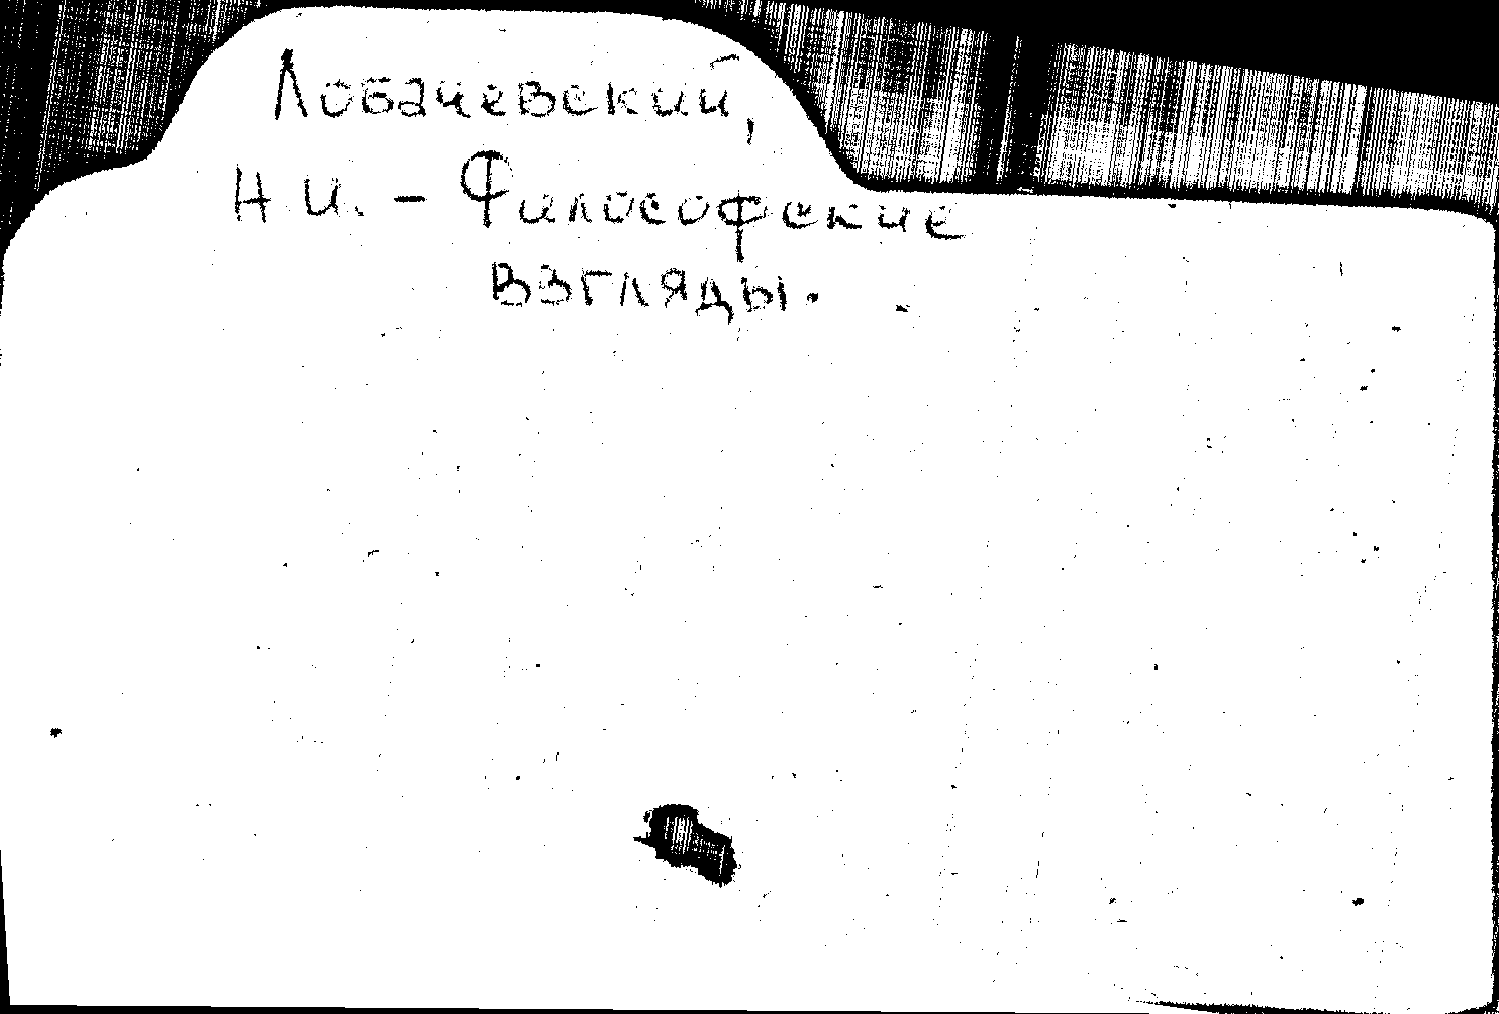 Лобачевский,
Н.И. – Философские
взгляды.